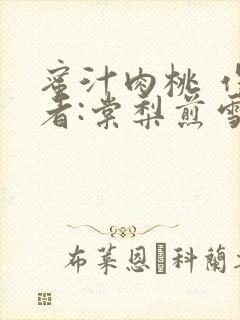 蜜汁肉桃
者:棠梨煎雪
布莱恩科蘭